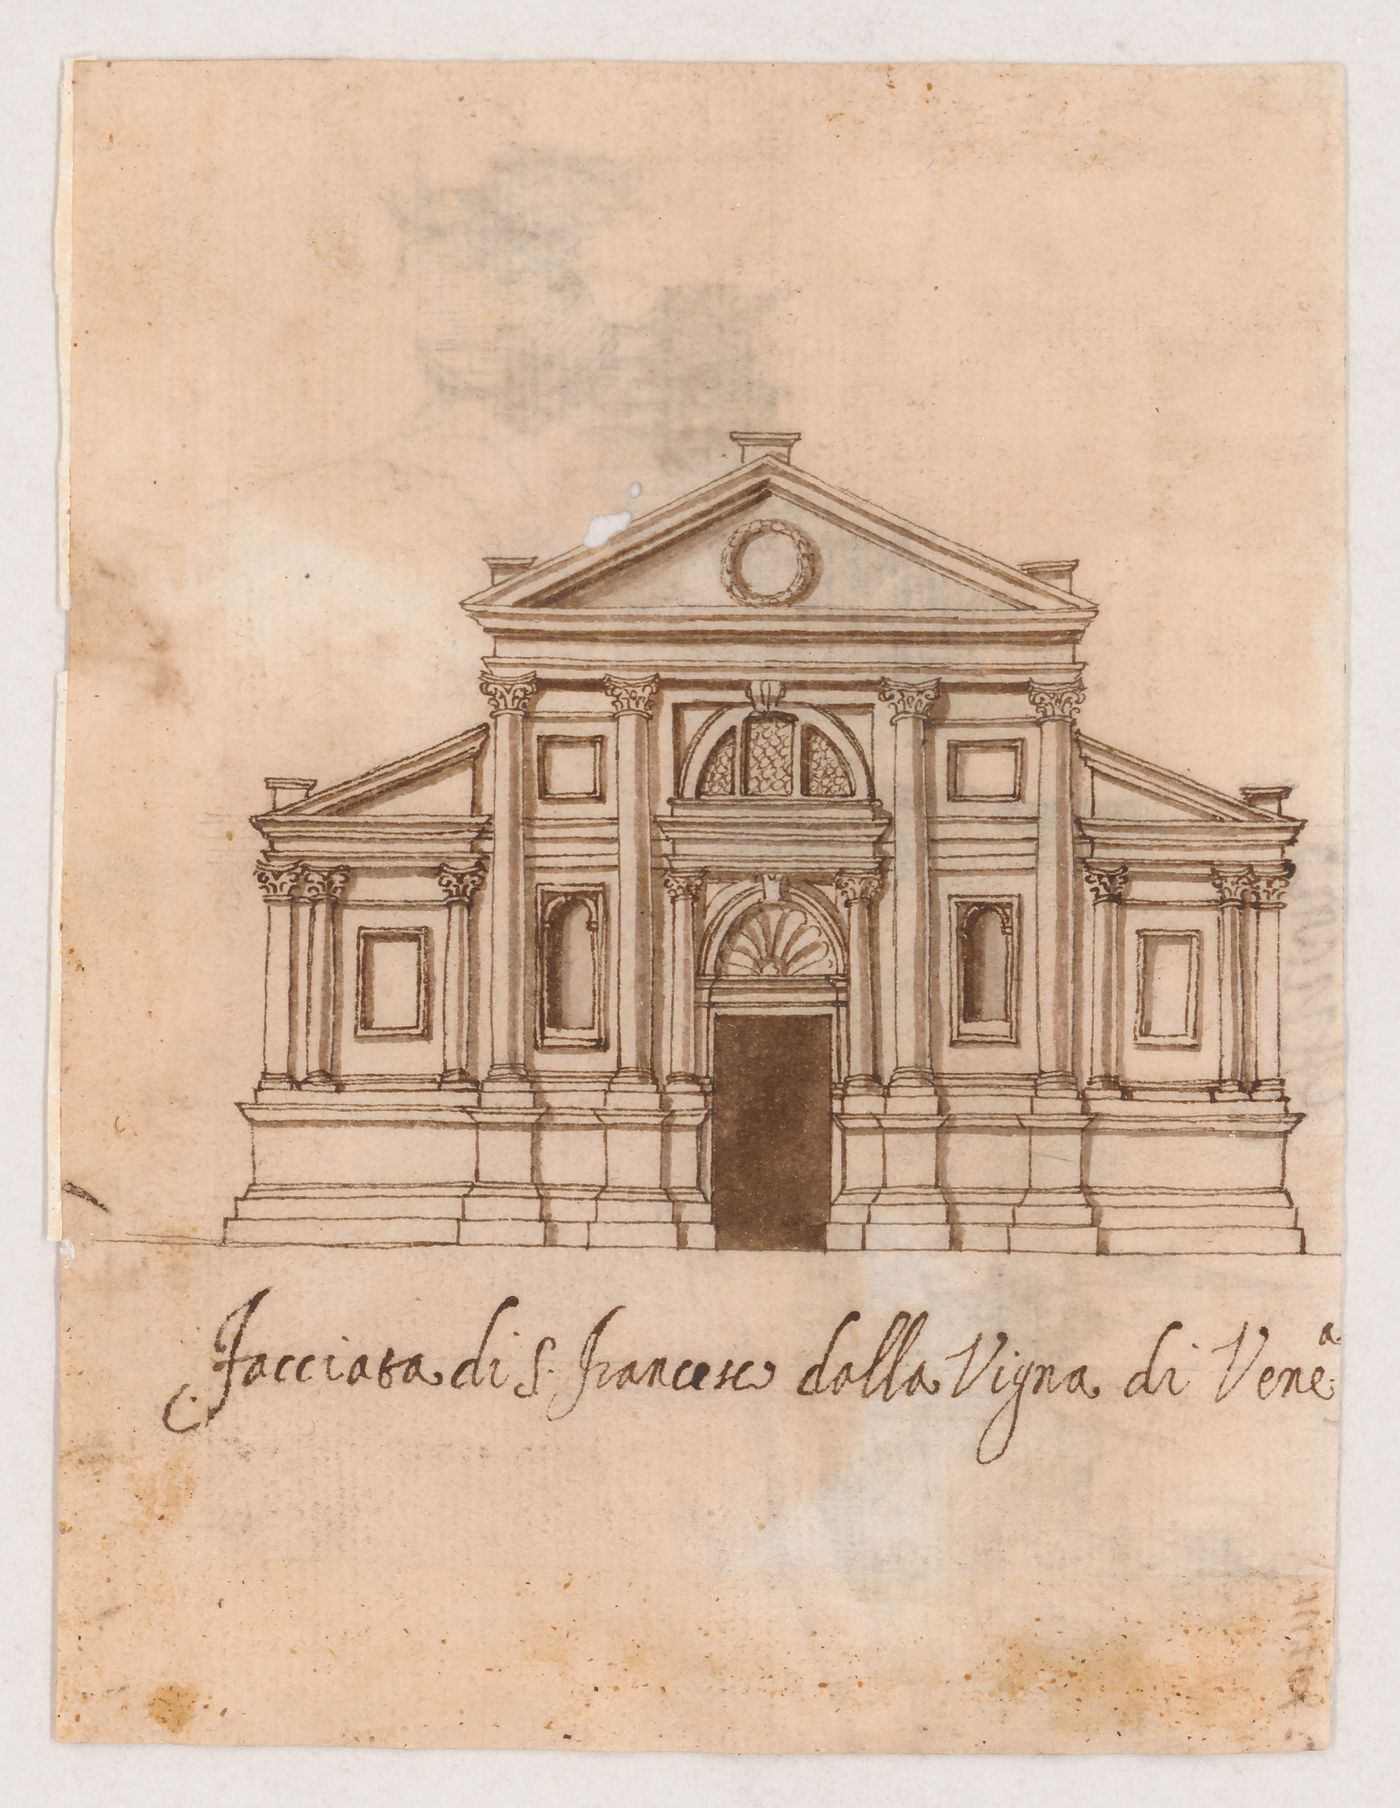 Facciata di S. Francesco dalla Vigna di Venê.ª